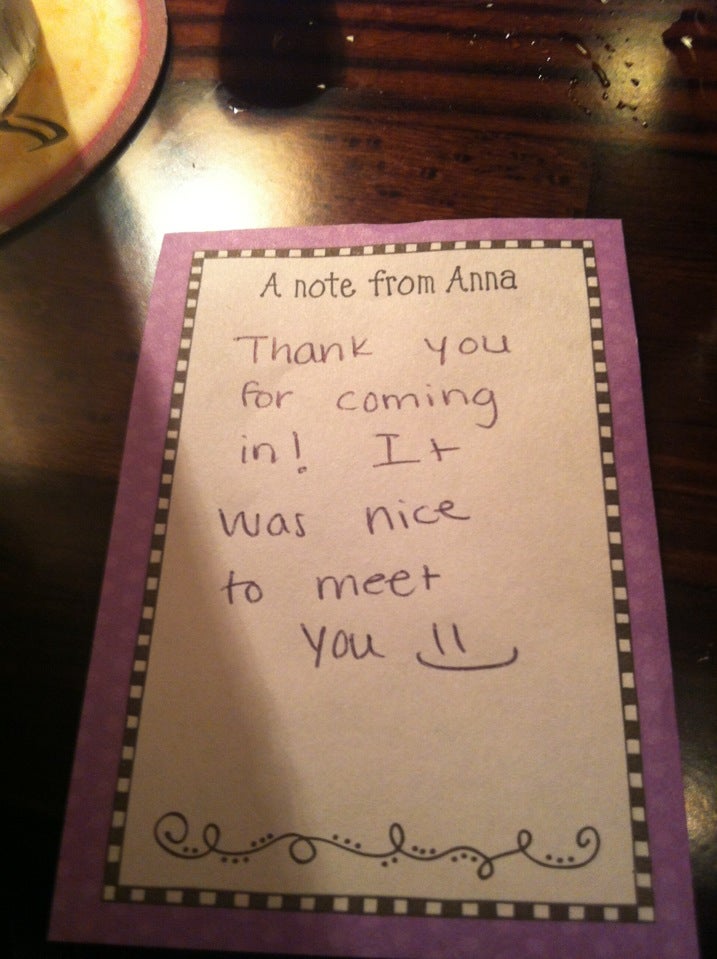 A note from Anna
Thank you
for coming
in! It
was nice
to meet
you